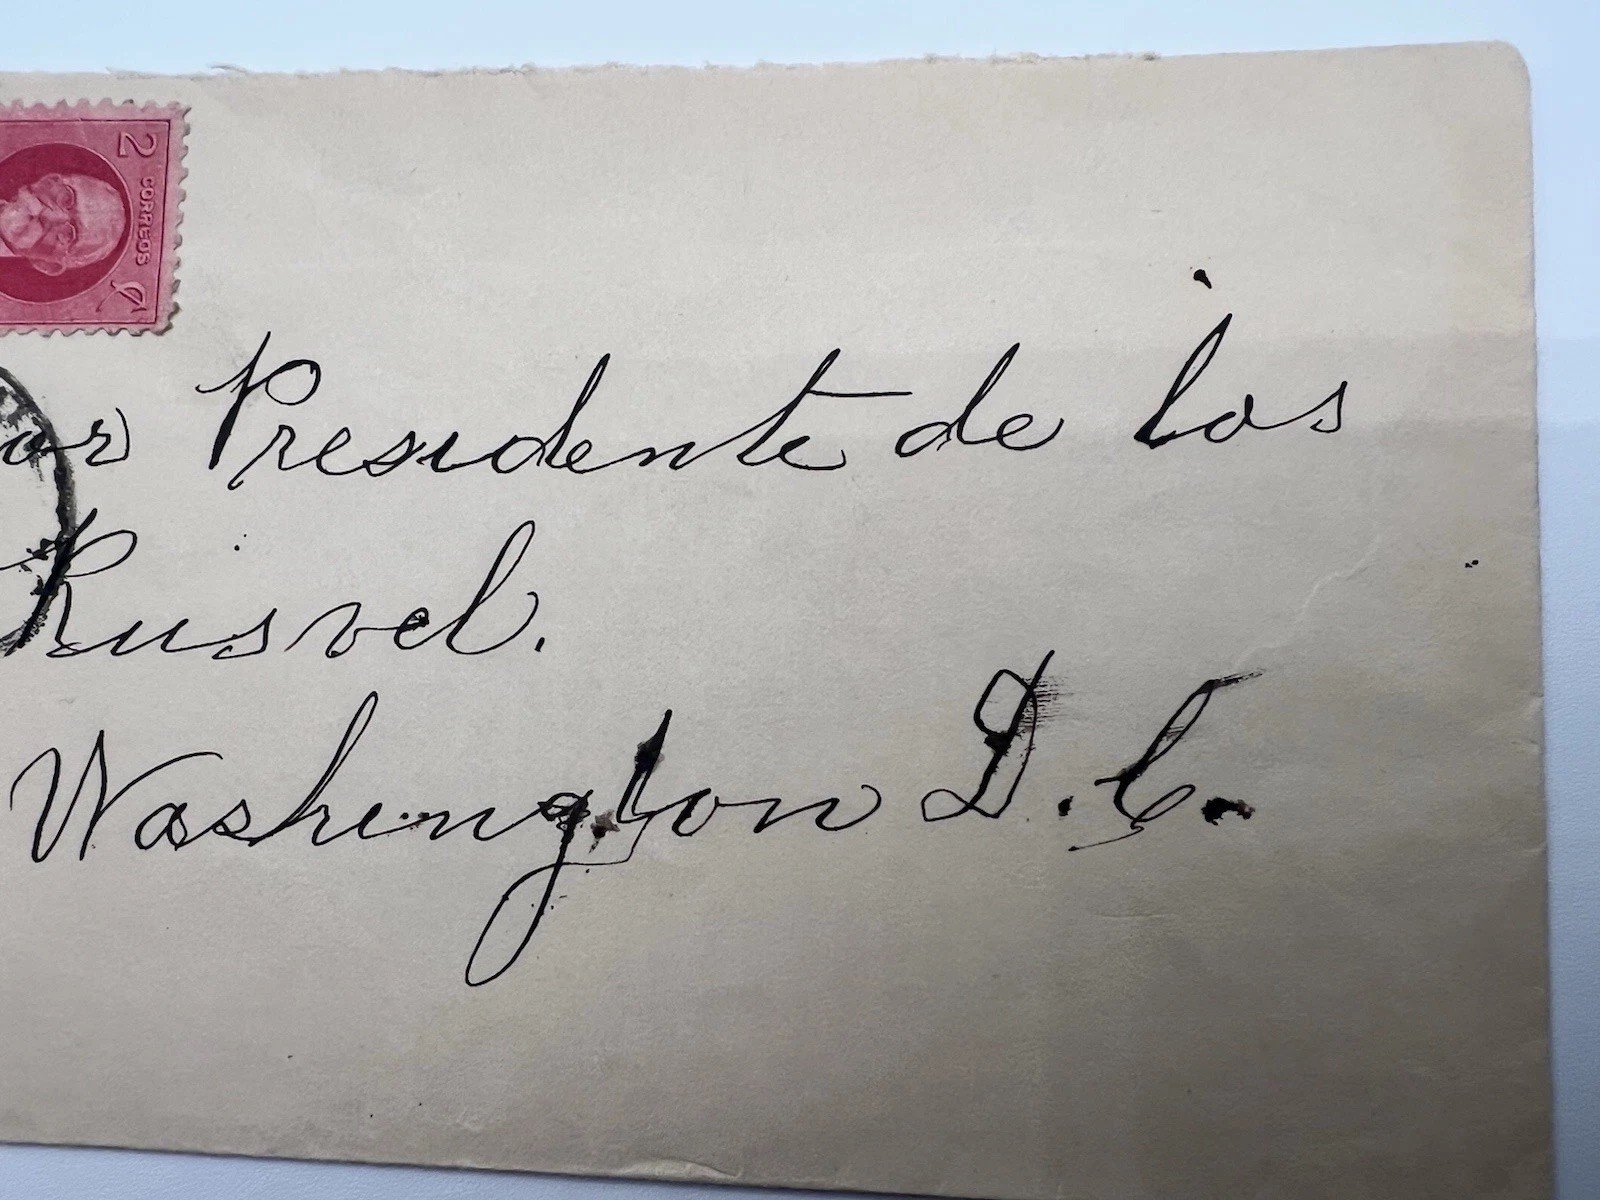 2 CORREOS
or Presidente de los
Rusvel.
Washington D.C.